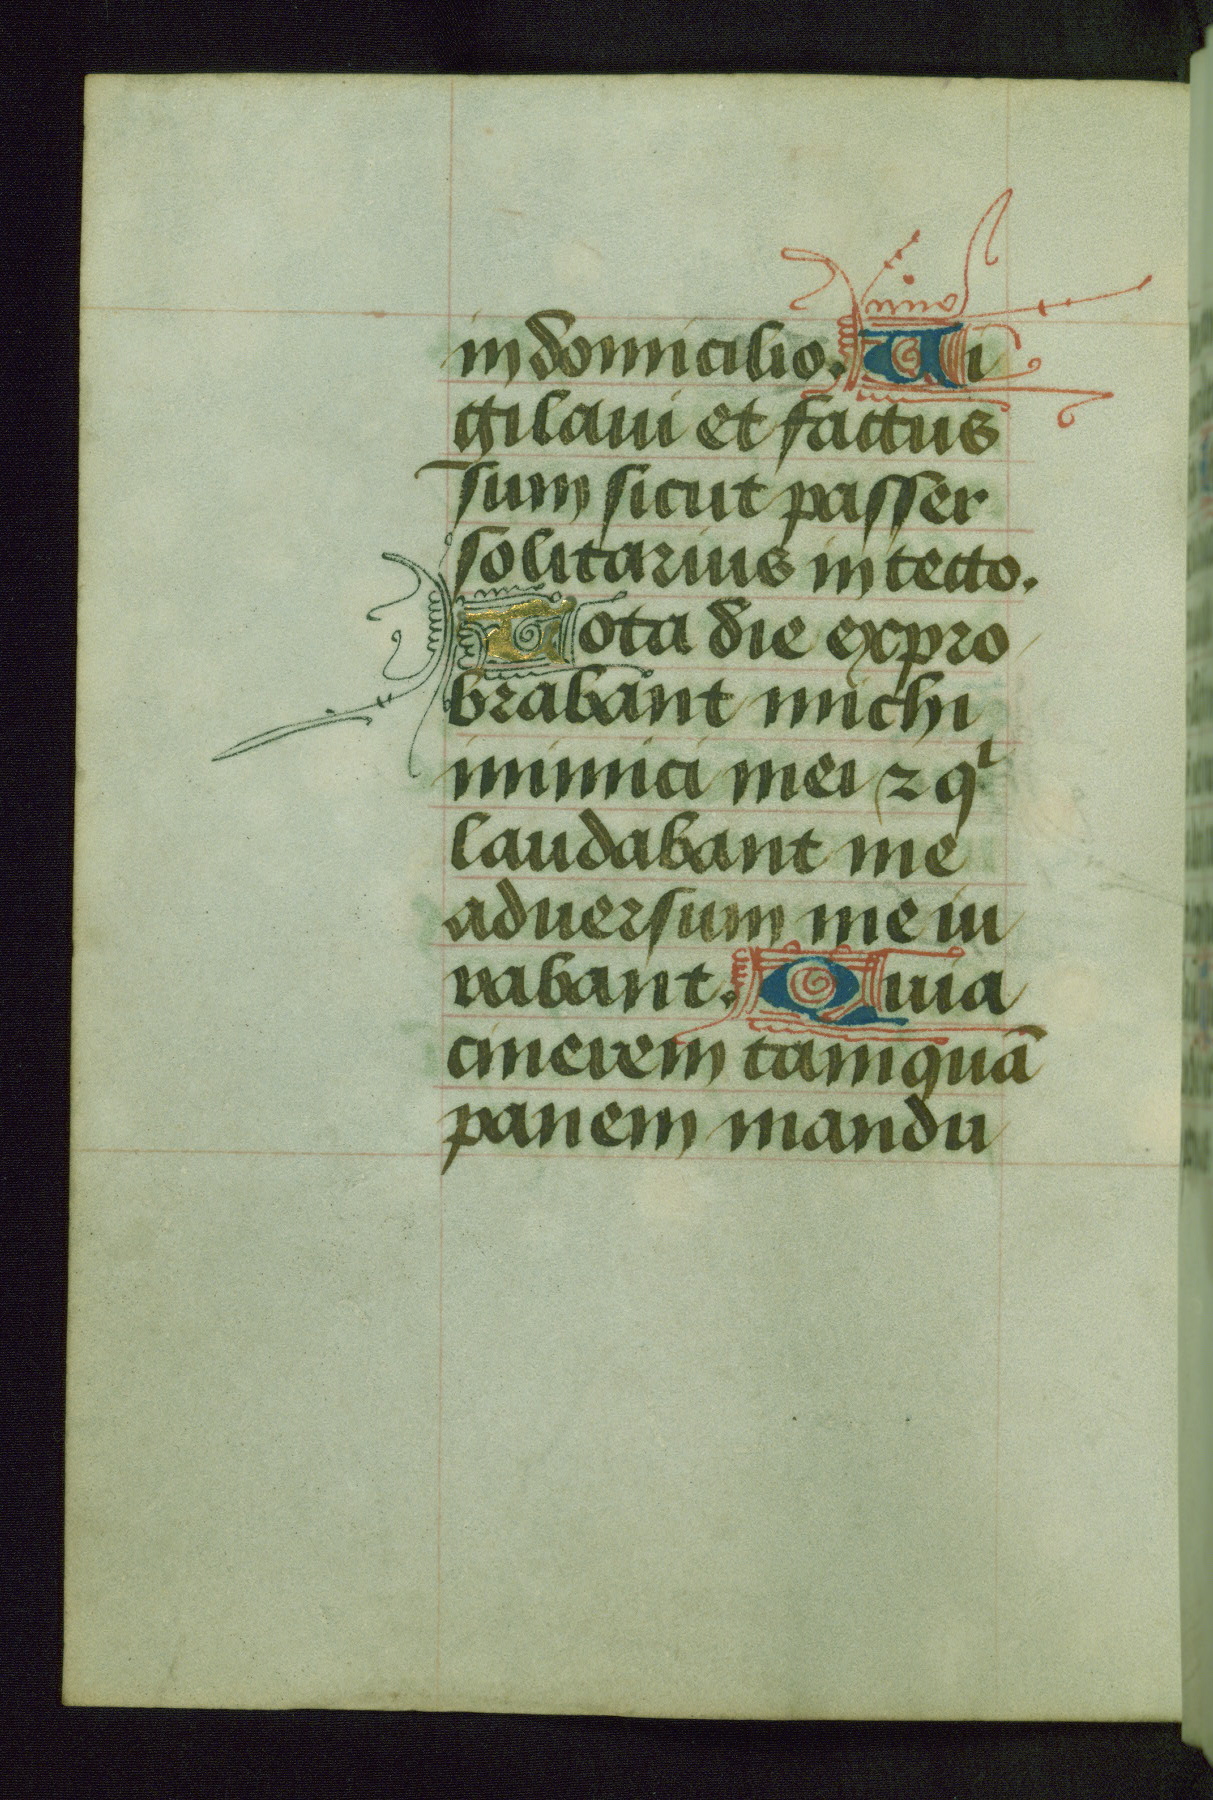 in domicilio. Ui
gilaui et factus
sum sicut passer
solitarius in tecto.
Tota die expro
brabant michi
inimici mei ⁊ qͥ
laudabant me
aduersum me iu
rabant. Quia
cinerem tamquā
panem mandu